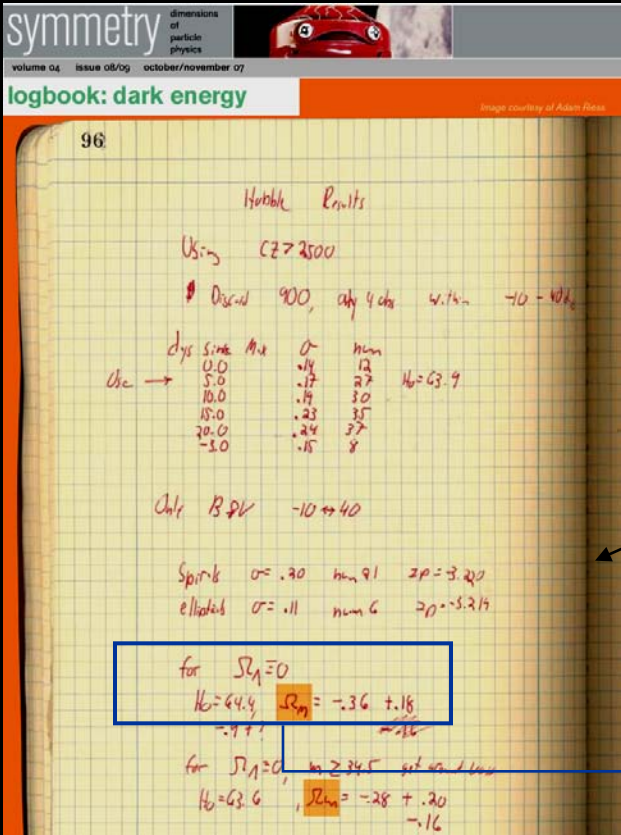 symmetry
dimensions
of
particle
physics
volume 04 issue 08/09 october/november 07
logbook: dark energy
Image courtesy of Adam Riess
96
Hubble Results
Using CZ > 2500
Discard 900, only 4 obs within -10 - 40d
dys Since Max σ num
0.0 .14 12
Use → 5.0 .17 27 H₀=63.9
10.0 .19 30
15.0 .23 35
20.0 .24 37
-3.0 .15 8
Only B&V -10 ↔ 40
Spirals σ= .20 num 21 zp = -3.220
ellipticals σ= .11 num 6 zp = -3.219
for ΩΛ=0
H₀=64.4, Ωm = -.36 +.18
for ΩΛ=0, m ≥ 34.5 get
H₀=63.6, Ωm = -.28 + .20
-.16